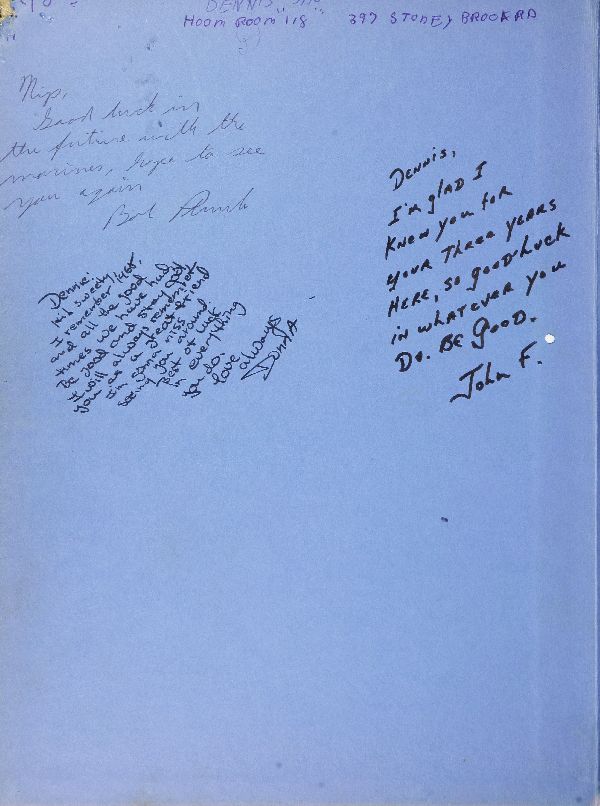 DENNIS
HOOM ROOM 118 397 STONEY BROOK RD
Nip,
Good luck in
the future with the
marines, hope to see
you again
Bob
Dennis,
I'm glad I
Knew you for
your Three years
Here, so good Luck
in whatever you
Do. Be Good.
John F.
Dennie:
Hi! Sweety
I remember 1968,
and all the good
times we have had.
Be good and stay
I will always remember
you as a great friend
I'm gonna miss
seeing you around
Best of luck
in everything
you do.
love always
Donna